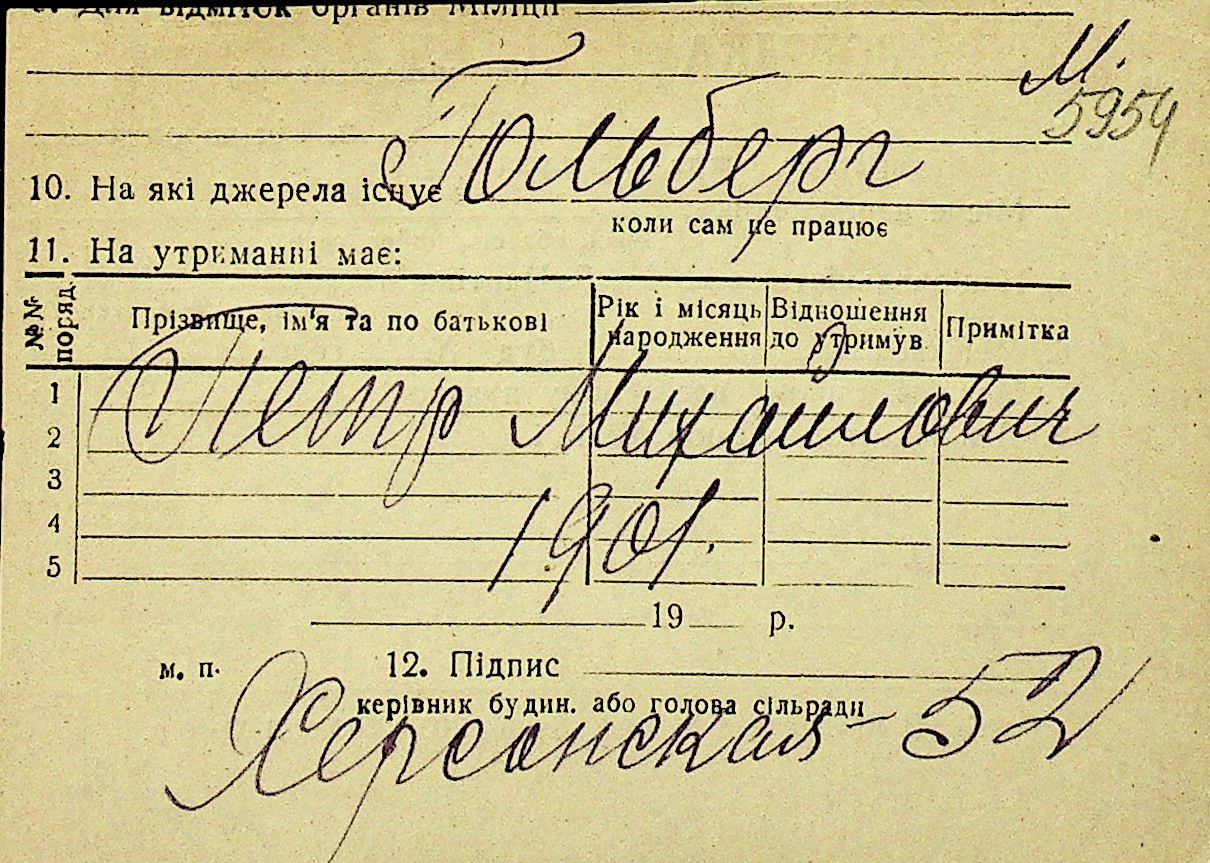 9. Для відміток органів Міліції
М.
5954
Гольберг
10. На які джерела існує
коли сам не працює
11. На утриманні має:
№№ поряд. Прізвище, ім'я та по батькові Рік і місяць народження Відношення до утримув. Примітка
1
Петр Михайлович
2
3
1901.
4
5
19 р.
м. п. 12. Підпис
керівник будин. або голова сільради
Херсонская – 52